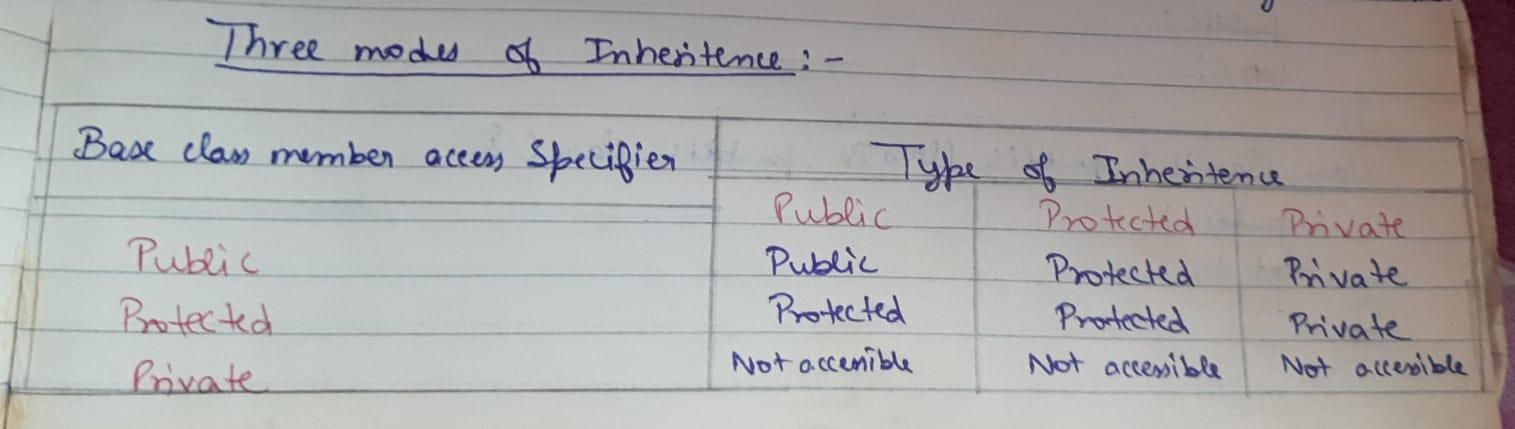 Three modes of Inheritence :-
Base class member access Specifier Type of Inheritence
Public Protected Private
Public Public Protected Private
Protected Protected Protected Private
Private Not accessible Not accessible Not accessible